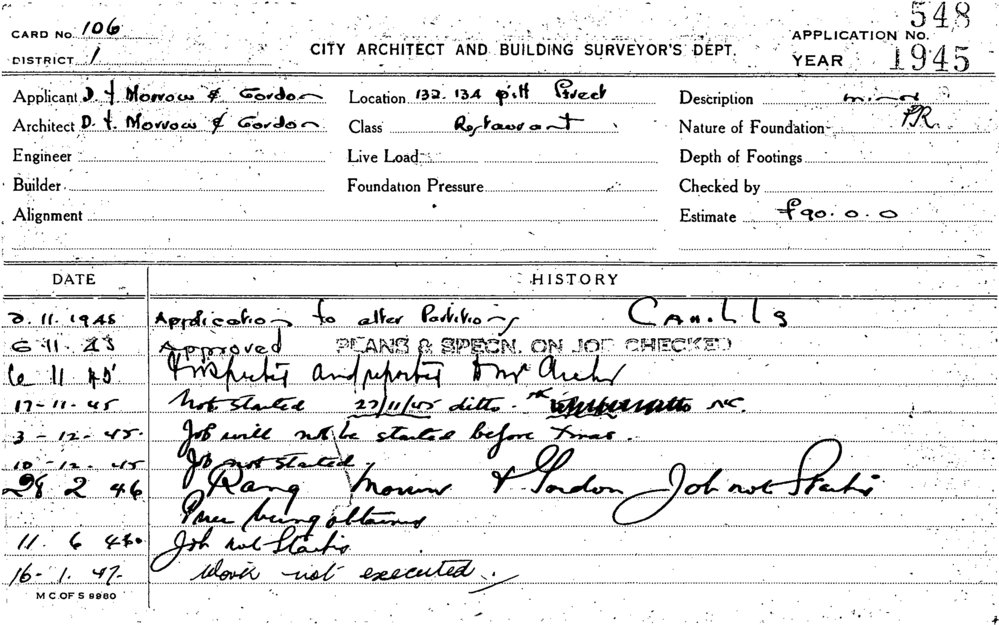 CARD No. 106
548
APPLICATION No.
DISTRICT 1
CITY ARCHITECT AND BUILDING SURVEYOR'S DEPT.
YEAR 1945
Applicant D. T. Morrow & Gordon
Location 132. 134 pitt Street
Description minor
Architect D. T. Morrow & Gordon
Class Restaurant
Nature of Foundation PR.
Engineer
Live Load
Depth of Footings
Builder
Foundation Pressure
Checked by
Alignment
Estimate £90.0.0
DATE HISTORY
2. 11. 1945 Application to alter Partitions
6 11. 45 Approved PLANS & SPECN. ON JOB CHECKED
6 11 45 Inspected and reported
17-11-45 Not started 27/11/45 ditto. NC.
3-12-45. Job will not be started before Xmas.
10-12-45 Job not started.
28 2 46 Rang Morrow & Gordon Job not Started
Prices being obtained
11. 6 46. Job not Started
16-1. 47. Work not executed.
M C OF S 9980